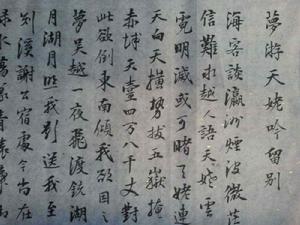 夢游天姥吟留别
海客談瀛洲煙波微茫
信難求越人語天姥雲
霓明滅或可睹天姥連
天向天横勢拔五嶽掩
赤城天臺四万八千丈對
此欲倒東南傾我欲因之
夢吴越一夜飛渡鏡湖
月湖月照我影送我至
剡溪謝公宿處今尚在
渌水蕩漾清猿啼